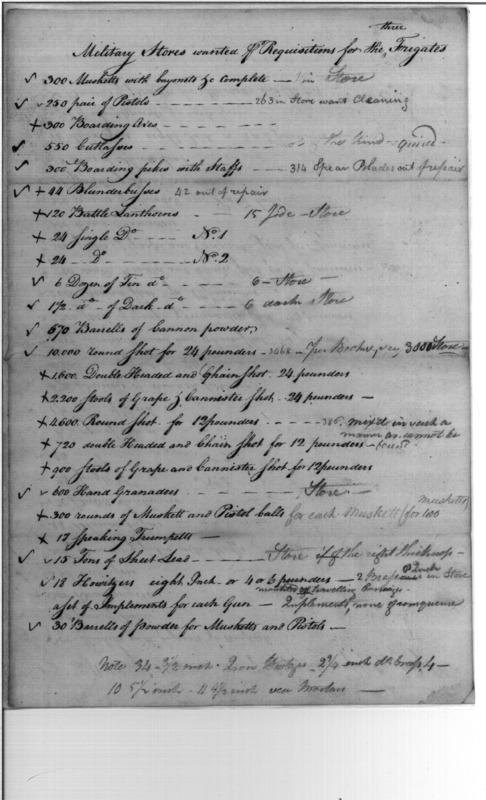 three
Military Stores wanted ℔ Requisitions for the Frigates
✓ 300 Musketts with bayonets &c complete — in Store
✓ ✓ 250 pair of Pistols - - - - 263 in Store want Cleaning
+ 300 Boarding Axes - - - -
✓ 550 Cutlasses - - - - the kind
✓ 300 Boarding pikes with Staffs - - - 314 Spear Blades out of repair
✓ + 44 Blunderbusses 42 out of repair
+ 120 Battle Lanthorns - - 15 Store
+ 24 Single Do - - No. 1
+ 24 - - Do - - - No. 2
✓ 6 Dozen of Tin do - - - - 6 - Store -
✓ 1/2 do - of Dark - do - - - 6 dark Store
✓ 670 Barrells of Cannon powder
✓ 10.000 round Shot for 24 pounders - 3000 Store
+ 1,600. Double Headed and Chain Shot. 24 pounders
+ 2.200 Stools of Grape & Cannister Shot. 24 pounders —
+ 4.600. Round Shot. for 12 pounders - - - - mix'd in such a
manner as cannot be
+ 720 double Headed and Chain Shot for 12 pounders -
+ 900 Stools of Grape and Cannister Shot for 12 pounders
✓ ✓ 600 Hand Granadoes - - - - Store -
musketts
+ 300 rounds of Muskett and Pistol balls for each Muskett for 100
+ 13 Speaking Trumpetts —
✓ ✓ 15 Tons of Sheet Lead - - - - Store if of the right thickness -
✓ 18 Howitzers eight Inch. or 4 a 6 pounders — 2 Brass 8 Inch in Store
mounted travelling Carriages
a set of Implements for each Gun — Implements, none of consequence
✓ 30 Barrells of Powder for Musketts and Pistols —
Note 34 - 5 1/2 inch - 2 2 3/4 inch do brass, 4 -
10 5 1/2 inch - 4 4 1/2 inch —